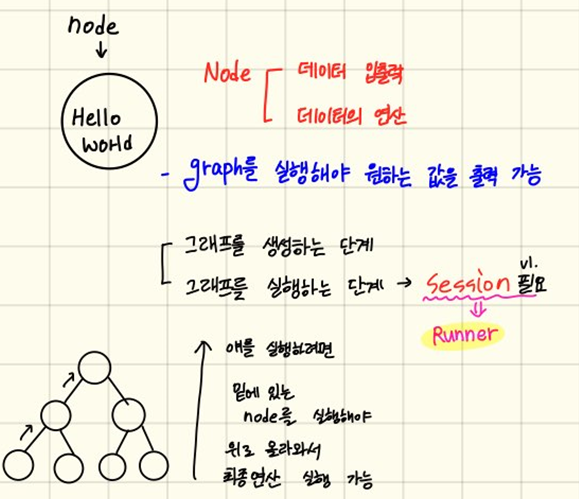 node
Hello
world
Node 데이터 입출력
데이터의 연산
- graph를 실행해야 원하는 값을 출력 가능
그래프를 생성하는 단계
그래프를 실행하는 단계 → Session v1. 필요
⇓
Runner
얘를 실행하려면
밑에 있는
node를 실행해야
위로 올라와서
최종연산 실행 가능